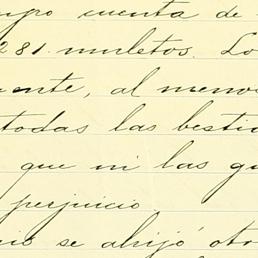 mpo cuenta de
281. muletos. Lo
ente, al menos
todas las bestia
que ni las gu
perjuicio
se ahijó otro